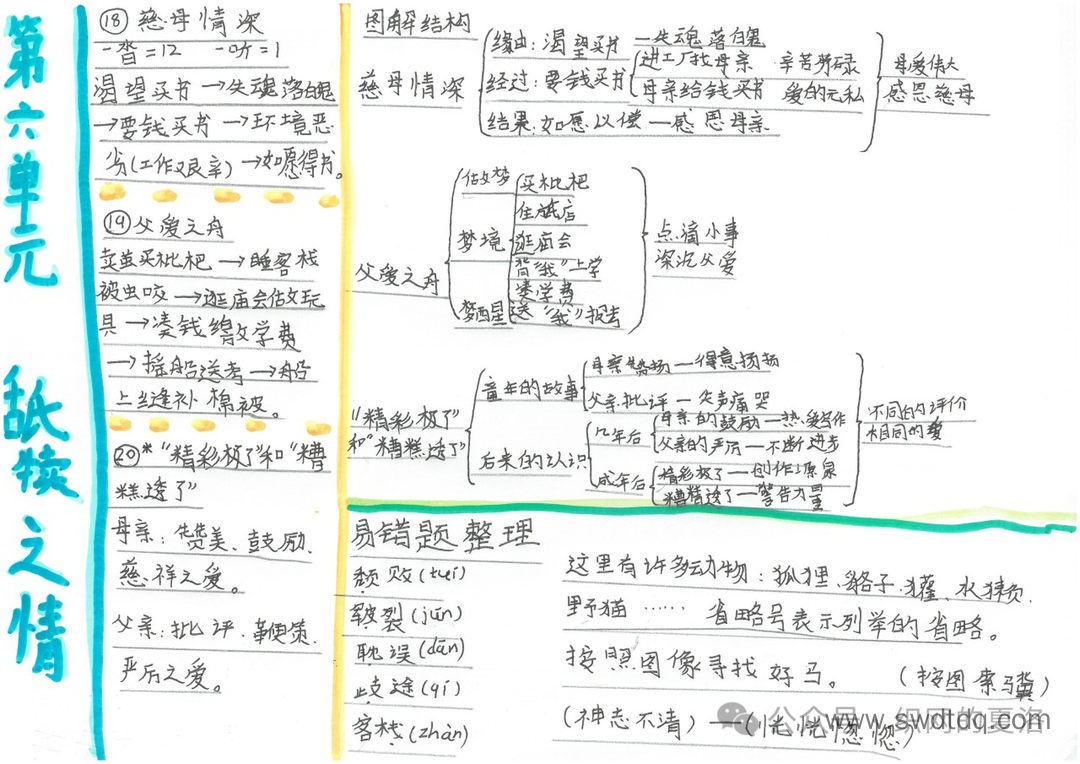 第六单元 舐犊之情
⑱慈母情深
一沓=12 一听=1
渴望买书→失魂落魄
→要钱买书→环境恶
劣(工作艰辛)→如愿得书。
⑲父爱之舟
卖茧买枇杷→睡客栈
被虫咬→逛庙会估玩
具→凑钱缴学费
→摇船送考→船
上缝补棉被。
⑳*“精彩极了”和“糟
糕透了”
母亲:赞美、鼓励、
慈祥之爱。
父亲:批评、鞭策、
严厉之爱。
图解结构
慈母情深
缘由:渴望买书 —失魂落魄
经过:要钱买书
进工厂找母亲 辛苦劳碌
母亲给钱买书 爱的无私
结果:如愿以偿—感恩母亲
母爱伟大
感恩慈母
父爱之舟
梦境
买枇杷
住旅店
逛庙会
背“我”上学
凑学费
梦醒
送“我”报考
点滴小事
深沉父爱
“精彩极了”
和“糟糕透了”
童年的故事
母亲赞扬—得意扬扬
父亲批评—失声痛哭
后来的认识
几年后
母亲的鼓励—热爱写作
父亲的严厉—不断进步
成年后
精彩极了—创作源泉
糟糕透了—警告力量
不同的评价
相同的爱
易错题整理
颓败(tuí)
皲裂(jūn)
耽误(dān)
歧途(qí)
客栈(zhàn)
这里有许多动物:狐狸、貉子、獾、水獭、
野猫…… 省略号表示列举的省略。
按照图像寻找好马。 (按图索骥)
(神志不清)—(恍恍惚惚)
公众号·织网的夏洛
www.swdtdq.com